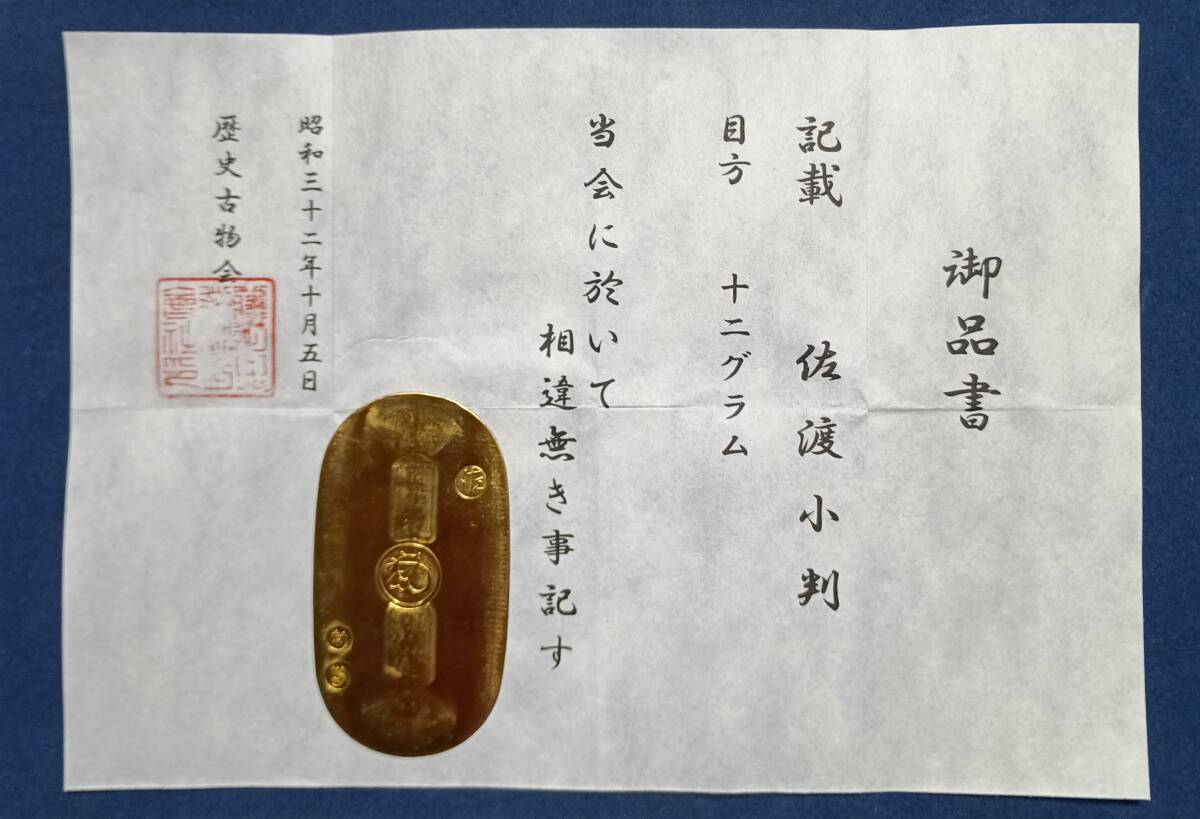 御品書
記載 佐渡小判
目方 十二グラム
当会に於いて
相違無き事記す
昭和三十二年十月五日
歴史古物会
佐